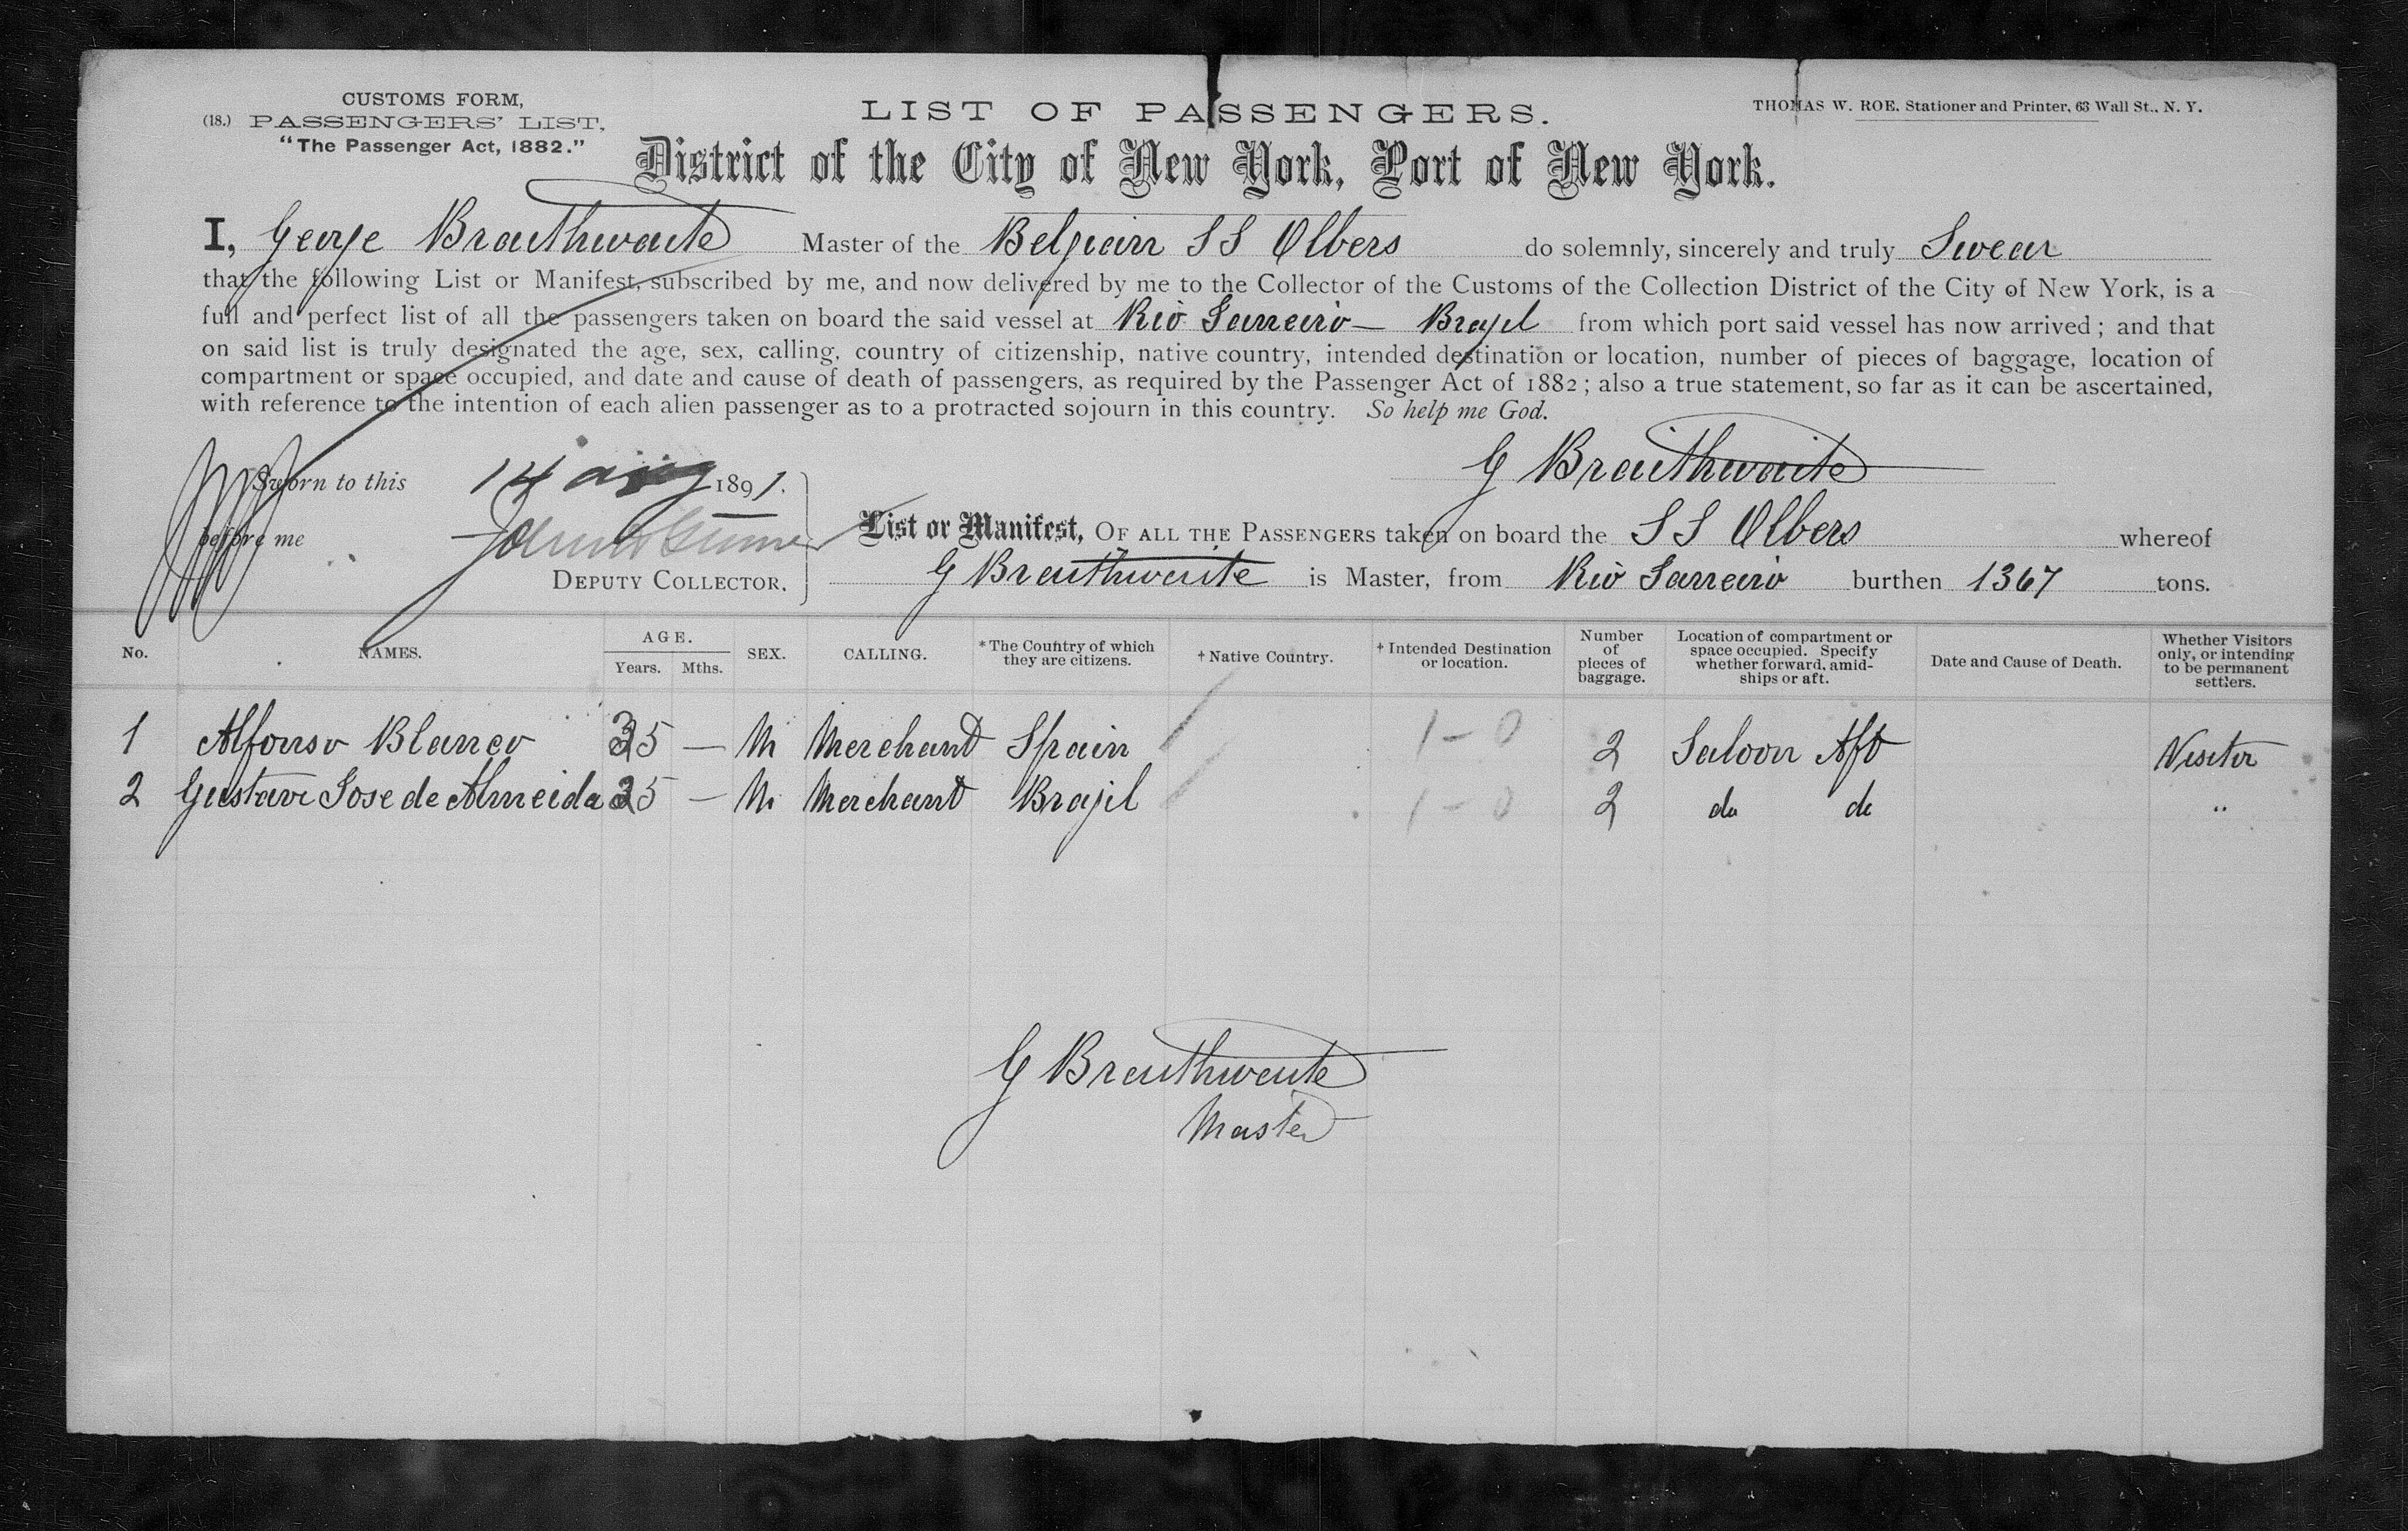 CUSTOMS FORM,
(18.) PASSENGERS' LIST,
"The Passenger Act, 1882."
LIST OF PASSENGERS.
THOMAS W. ROE. Stationer and Printer, 63 Wall St., N. Y.
District of the City of New York, Port of New York.
I, George Braithwaite Master of the Belgian SS Olbers do solemnly, sincerely and truly Swear
that the following List or Manifest, subscribed by me, and now delivered by me to the Collector of the Customs of the Collection District of the City of New York, is a
full and perfect list of all the passengers taken on board the said vessel at Rio Janeiro — Brazil from which port said vessel has now arrived; and that
on said list is truly designated the age, sex, calling, country of citizenship, native country, intended destination or location, number of pieces of baggage, location of
compartment or space occupied, and date and cause of death of passengers, as required by the Passenger Act of 1882; also a true statement, so far as it can be ascertained,
with reference to the intention of each alien passenger as to a protracted sojourn in this country. So help me God.
G Braithwaite
Sworn to this 14 aug 1891.
before me
DEPUTY COLLECTOR.
List or Manifest, OF ALL THE PASSENGERS taken on board the SS Olbers whereof
G Braithwaite is Master, from Rio Janeiro burthen 1367 tons.
No. NAMES. AGE. Years. Mths. SEX. CALLING. *The Country of which they are citizens. †Native Country. †Intended Destination or location. Number of pieces of baggage. Location of compartment or space occupied. Specify whether forward, amidships or aft. Date and Cause of Death. Whether Visitors only, or intending to be permanent settlers.
1 Alfonso Blanco 35 — M Merchant Spain / 1-0 2 Saloon Aft Visitor
2 Gustave Jose de Almeida 25 — M Merchant Brazil / 1-0 2 do do "
G Braithwaite
Master